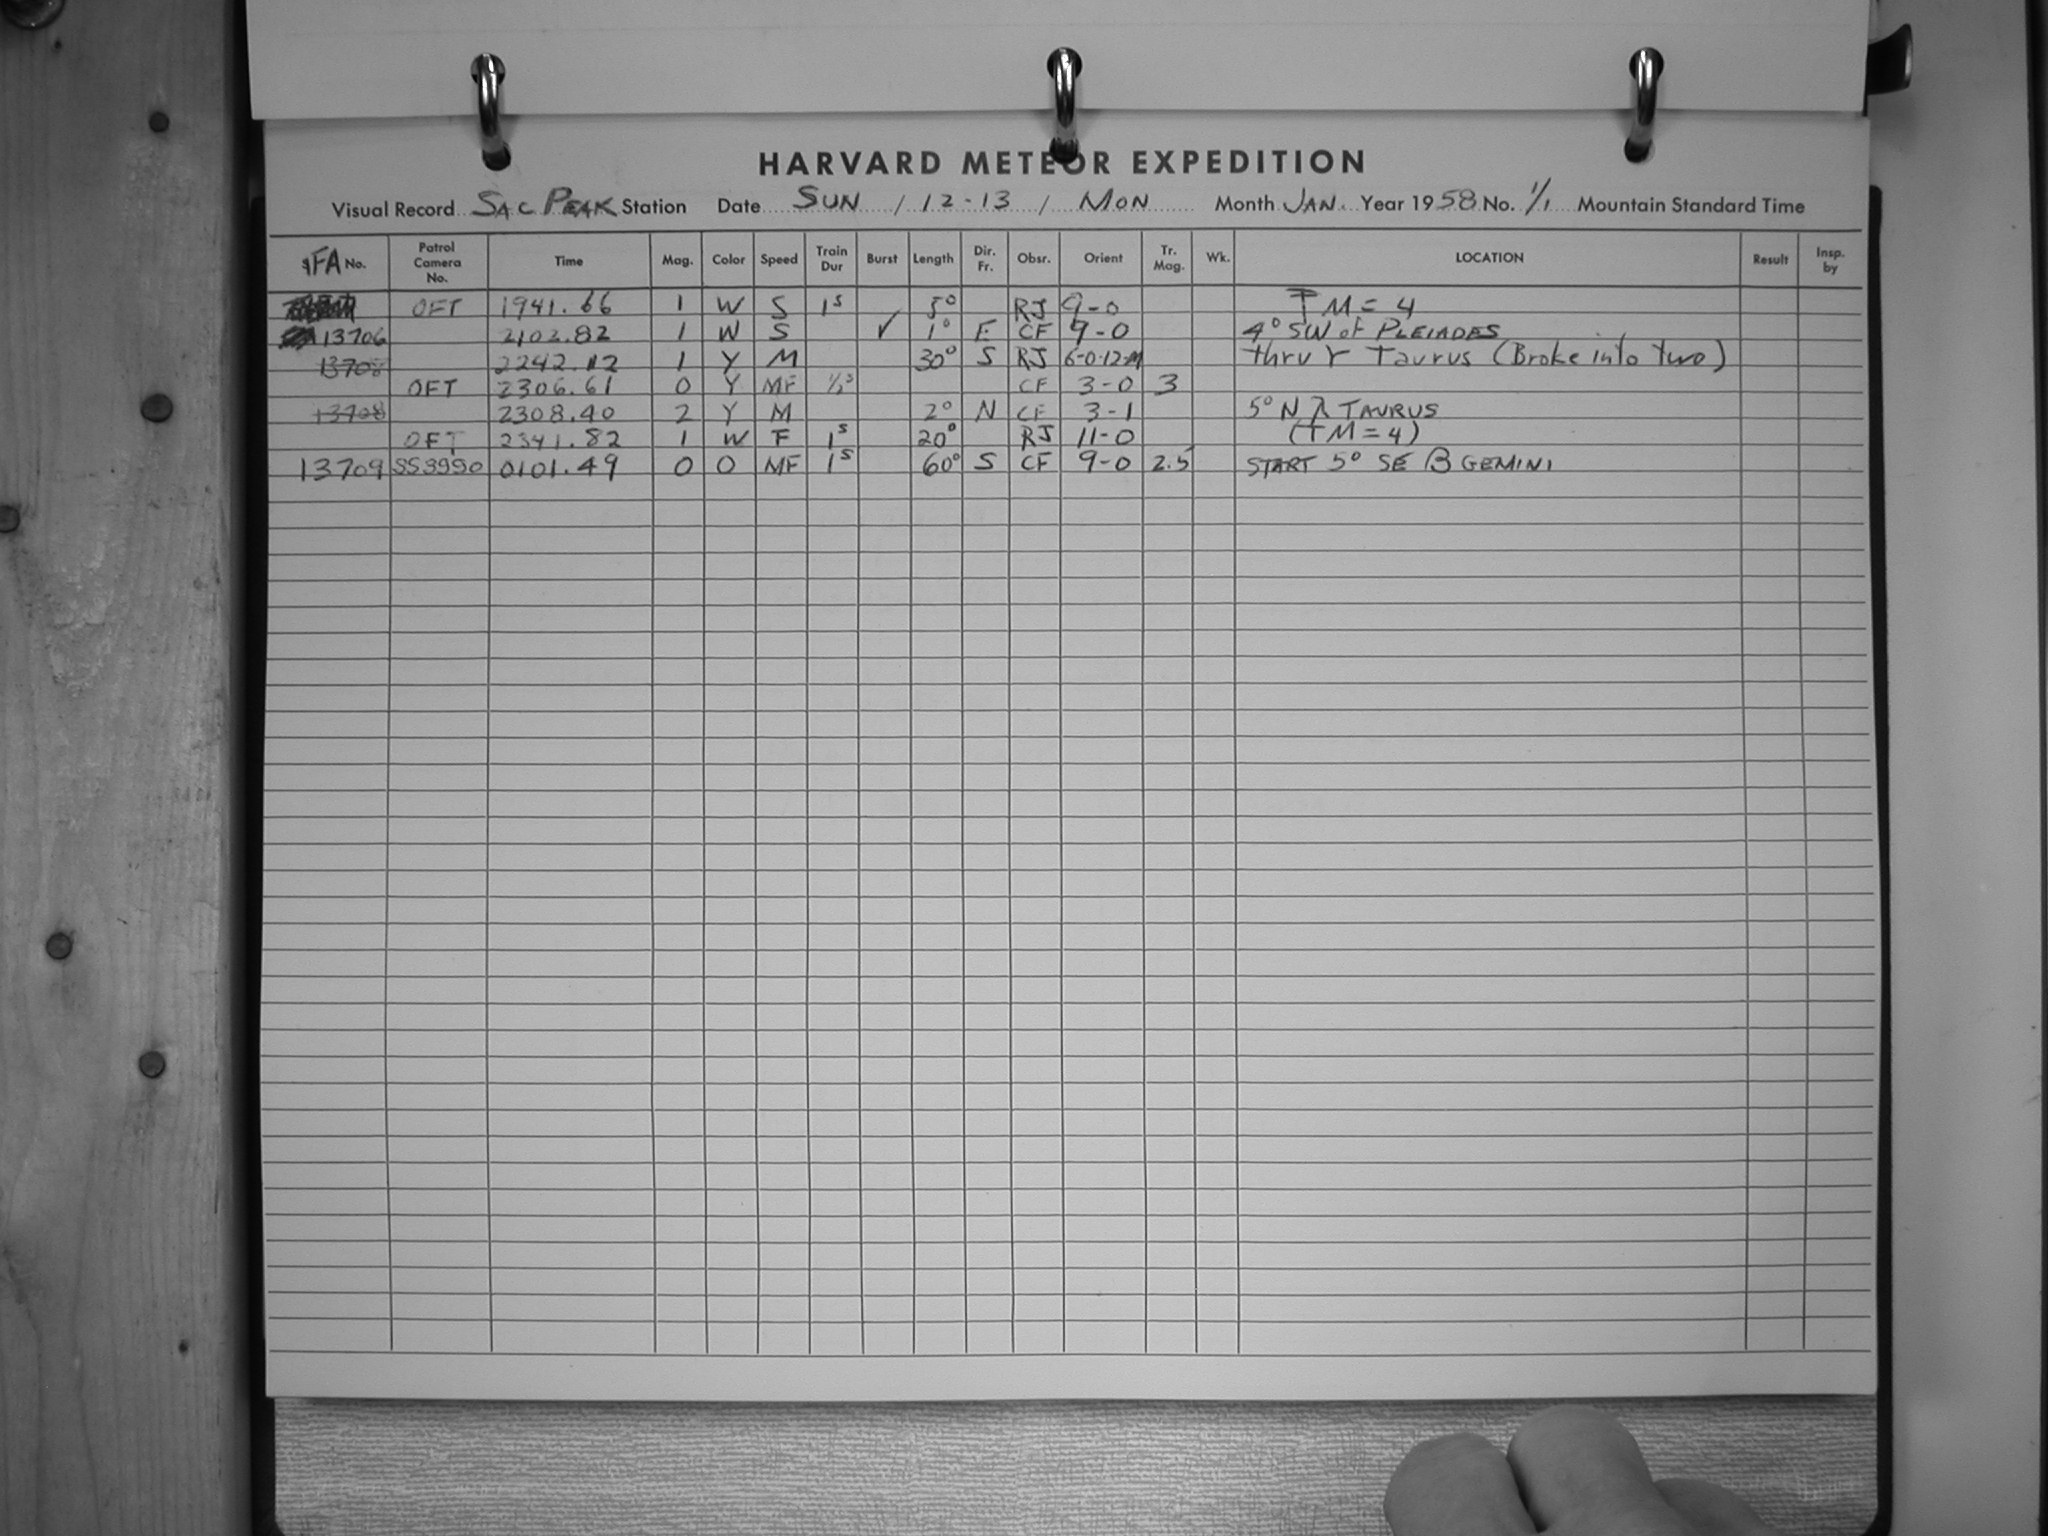 HARVARD METEOR EXPEDITION
Visual Record SAC PEAK Station Date SUN / 12-13 / MON Month JAN. Year 1958 No. 1/1 Mountain Standard Time
FA No. Patrol Camera No. Time Mag. Color Speed Train Dur Burst Length Dir. Fr. Obsr. Orient Tr. Mag. Wk. LOCATION Result Insp. by
OFT 1941.66 1 W S 1s 5° RJ 9-0 TM = 4
13706 2102.82 1 W S ✓ 1° E CF 9-0 4° SW of PLEIADES
2242.12 1 Y M 30° S RJ 6-0-12-M thru γ Taurus (Broke into two)
OFT 2306.61 0 Y MF 1/2s CF 3-0 3
13708 2308.40 2 Y M 2° N CF 3-1 5° N λ TAURUS
OFT 2341.82 1 W F 1s 20° RJ 11-0 (TM = 4)
13709 SS3990 0101.49 0 O MF 1s 60° S CF 9-0 2.5 START 5° SE β GEMINI